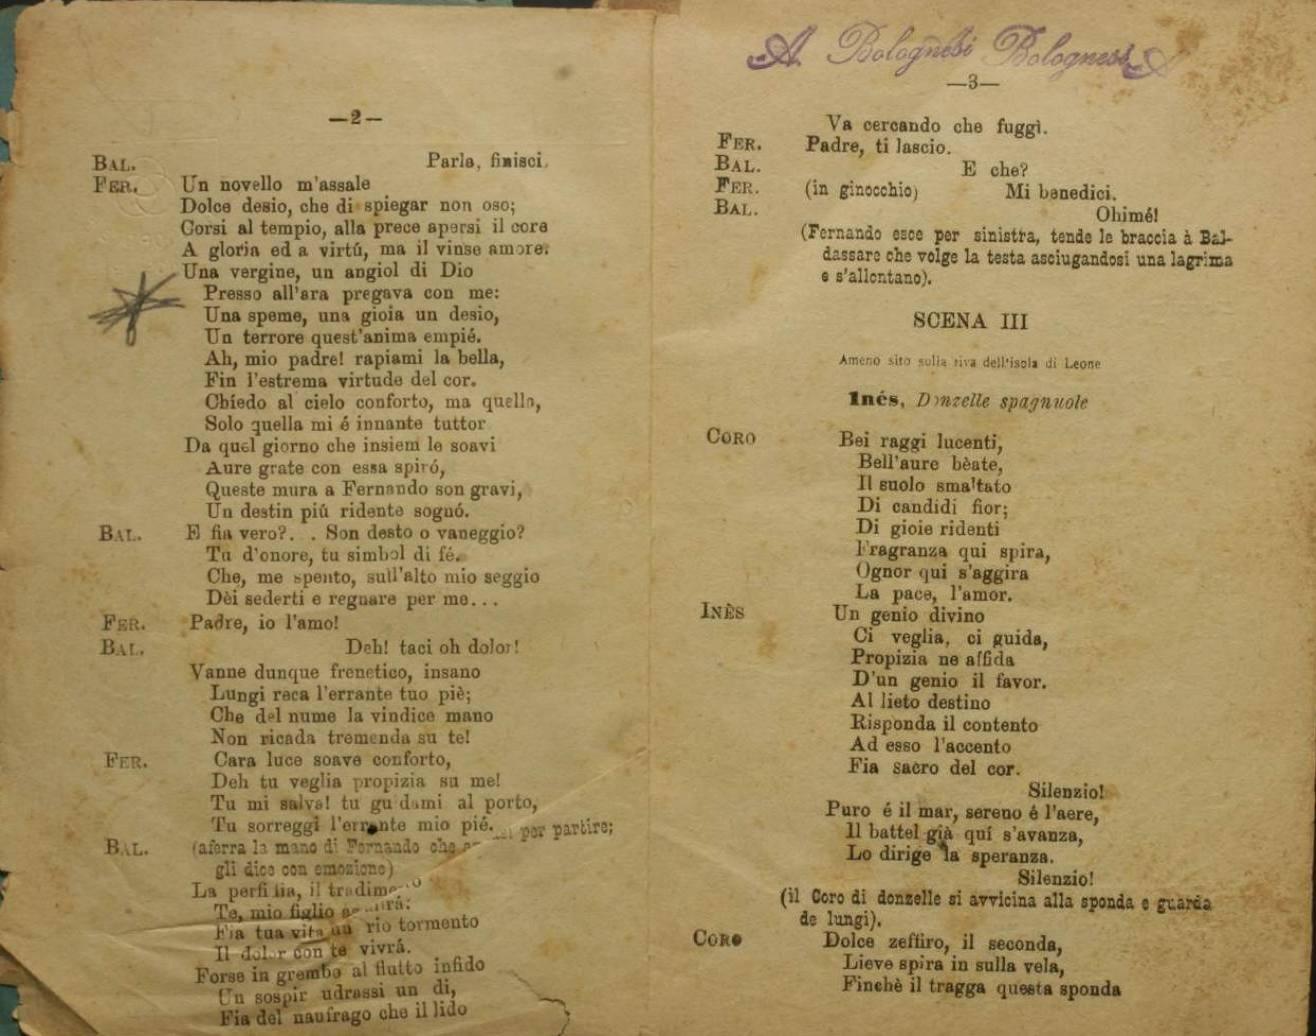 —2—
BAL. Parla, finisci.
FER. Un novello m'assale
Dolce desio, che di spiegar non oso;
Corsi al tempio, alla prece apersi il core
A gloria ed a virtú, ma il vinse amore.
Una vergine, un angiol di Dio
Presso all'ara pregava con me:
Una speme, una gioia un desio,
Un terrore quest'anima empié.
Ah, mio padre! rapiami la bella,
Fin l'estrema virtude del cor.
Chiedo al cielo conforto, ma quella,
Solo quella mi é innante tuttor
Da quel giorno che insiem le soavi
Aure grate con essa spiró,
Queste mura a Fernando son gravi,
Un destin piú ridente sognó.
BAL. E fia vero?. . Son desto o vaneggio?
Tu d'onore, tu simbol di fé.
Che, me spento, sull'alto mio seggio
Dèi sederti e regnare per me...
FER. Padre, io l'amo!
BAL. Deh! taci oh dolor!
Vanne dunque frenetico, insano
Lungi reca l'errante tuo piè;
Che del nume la vindice mano
Non ricada tremenda su te!
FER. Cara luce soave conforto,
Deh tu veglia propizia su me!
Tu mi salva! tu guidami al porto,
Tu sorreggi l'errante mio pié.
BAL. (aferra la mano di Fernando che per partire;
gli dice con emozione)
La perfidia, il
Te, mio figlio
Fia tua vita un rio tormento
Il dolor con te vivrá.
Forse in grembo al flutto infido
Un sospir udrassi un di,
Fia del naufrago che il lido
A Bolognesi Bolognesi A
—3—
Va cercando che fuggì.
FER. Padre, ti lascio.
BAL. E che?
FER. (in ginocchio) Mi benedici.
BAL. Ohimé!
(Fernando esce per sinistra, tende le braccia à Bal-
dassare che volge la testa asciugandosi una lagrima
e s'allontano).
SCENA III
Ameno sito sulla riva dell'isola di Leone
Inés, Donzelle spagnuole
CORO Bei raggi lucenti,
Bell'aure bèate,
Il suolo smaltato
Di candidi fior;
Di gioie ridenti
Fragranza qui spira,
Ognor qui s'aggira
La pace, l'amor.
INÈS Un genio divino
Ci veglia, ci guida,
Propizia ne affida
D'un genio il favor.
Al lieto destino
Risponda il contento
Ad esso l'accento
Fia sacro del cor.
Silenzio!
Puro é il mar, sereno é l'aere,
Il battel già quí s'avanza,
Lo dirige la speranza.
Silenzio!
(il Coro di donzelle si avvicina alla sponda e guarda
de lungi).
CORO Dolce zeffiro, il seconda,
Lieve spira in sulla vela,
Finchè il tragga questa sponda